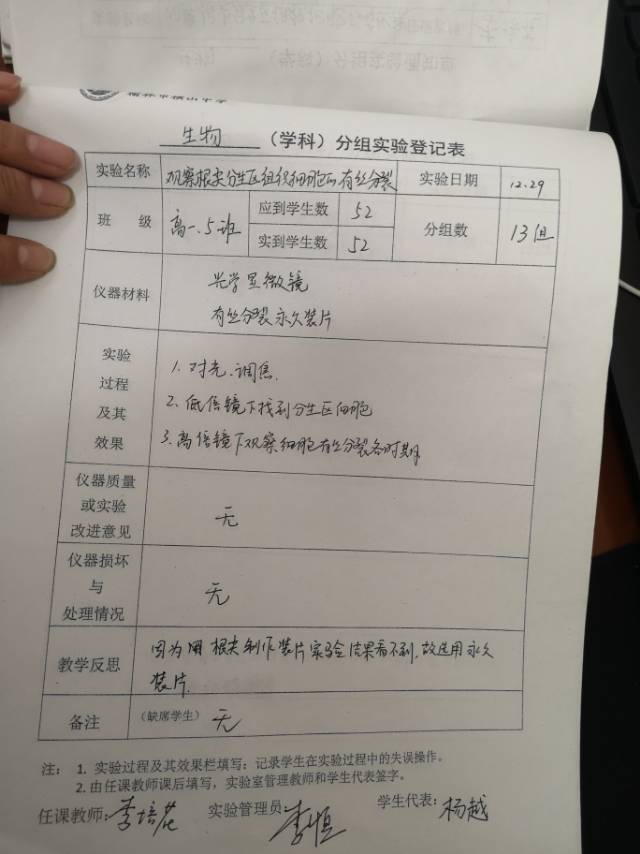 生物 （学科）分组实验登记表
实验名称 观察根尖分生区组织细胞的有丝分裂 实验日期 12.29
班 级 高一.5班 应到学生数 52 分组数 13组
实到学生数 52
仪器材料 光学显微镜
有丝分裂永久装片
实验
过程
及其
效果
1. 对光、调焦.
2. 低倍镜下找到分生区细胞
3. 高倍镜下观察细胞有丝分裂各时期
仪器质量
或实验
改进意见
无
仪器损坏
与
处理情况
无
教学反思 因为用根尖制作装片实验结果看不到,故选用永久
装片.
备注 （缺席学生） 无
注： 1. 实验过程及其效果栏填写：记录学生在实验过程中的失误操作。
2. 由任课教师课后填写，实验室管理教师和学生代表签字。
任课教师: 李培花 实验管理员: 李恒 学生代表: 杨越